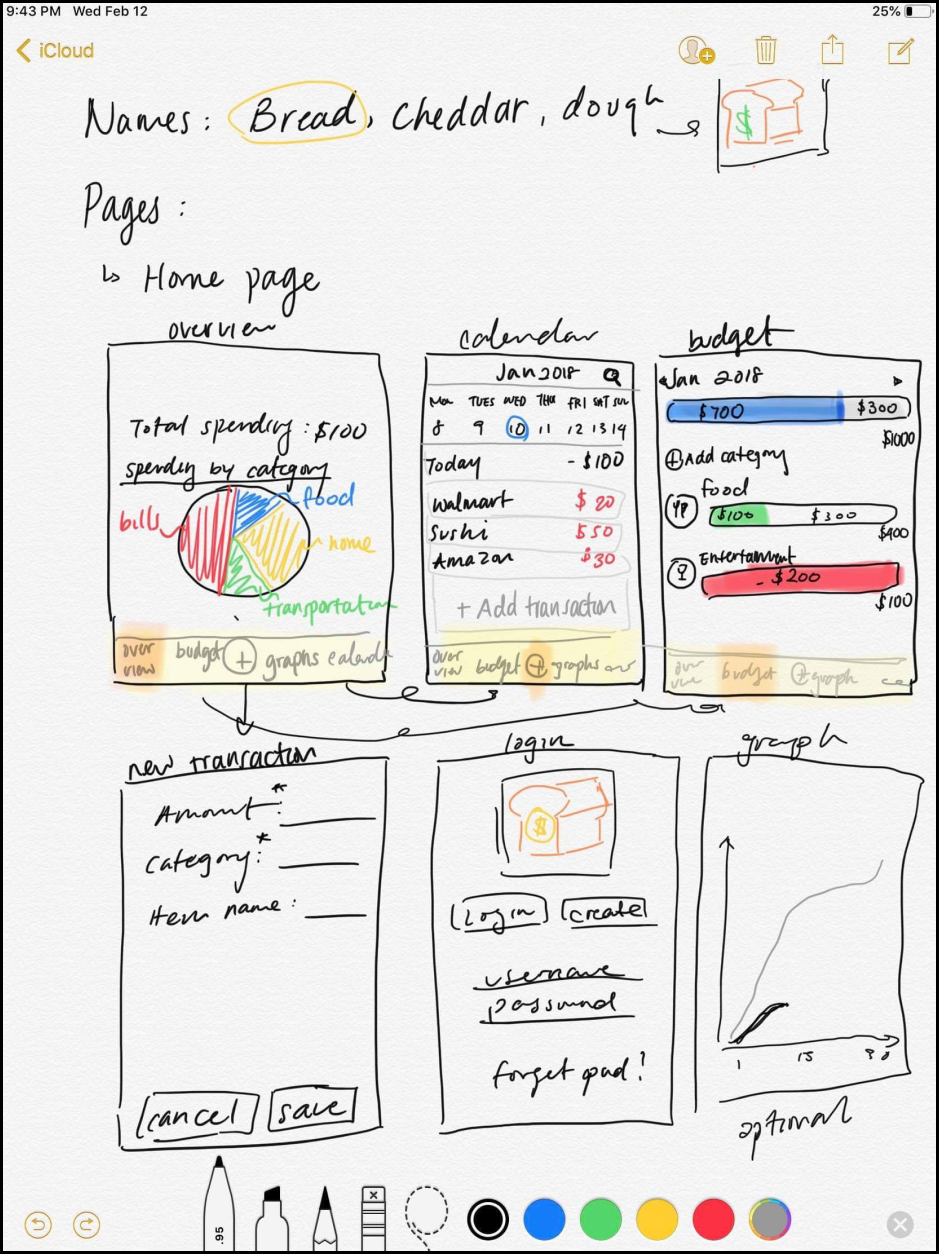 9:43 PM Wed Feb 12
25%
iCloud
Names: Bread, cheddar, dough
$
Pages:
↳ Home page
overview
Total spending: $100
spending by category
bills
food
home
transportation
over view budget + graphs calendar
calendar
Jan 2018
Mon TUES WED THU FRI SAT SUN
8 9 10 11 12 13 14
Today - $100
Walmart $20
Sushi $50
Amazon $30
+ Add transaction
over view budget + graphs
budget
Jan 2018
$700 $300
$1000
+ Add category
food
$100 $300
$400
Entertainment
- $200
$100
over view budget + graph cal
new transaction
Amount*:
Category*:
Item name:
cancel save
login
$
Login create
username
password
forget pwd?
graph
1 15 30
optional
.95